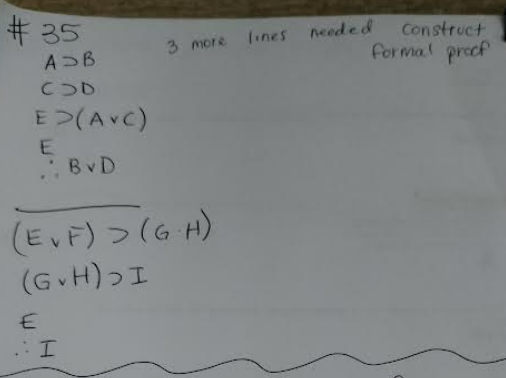 # 35
3 more lines needed construct
formal proof
A⊃B
C⊃D
E⊃(A∨C)
E
∴ B∨D
(E∨F)⊃(G·H)
(G∨H)⊃I
E
∴ I